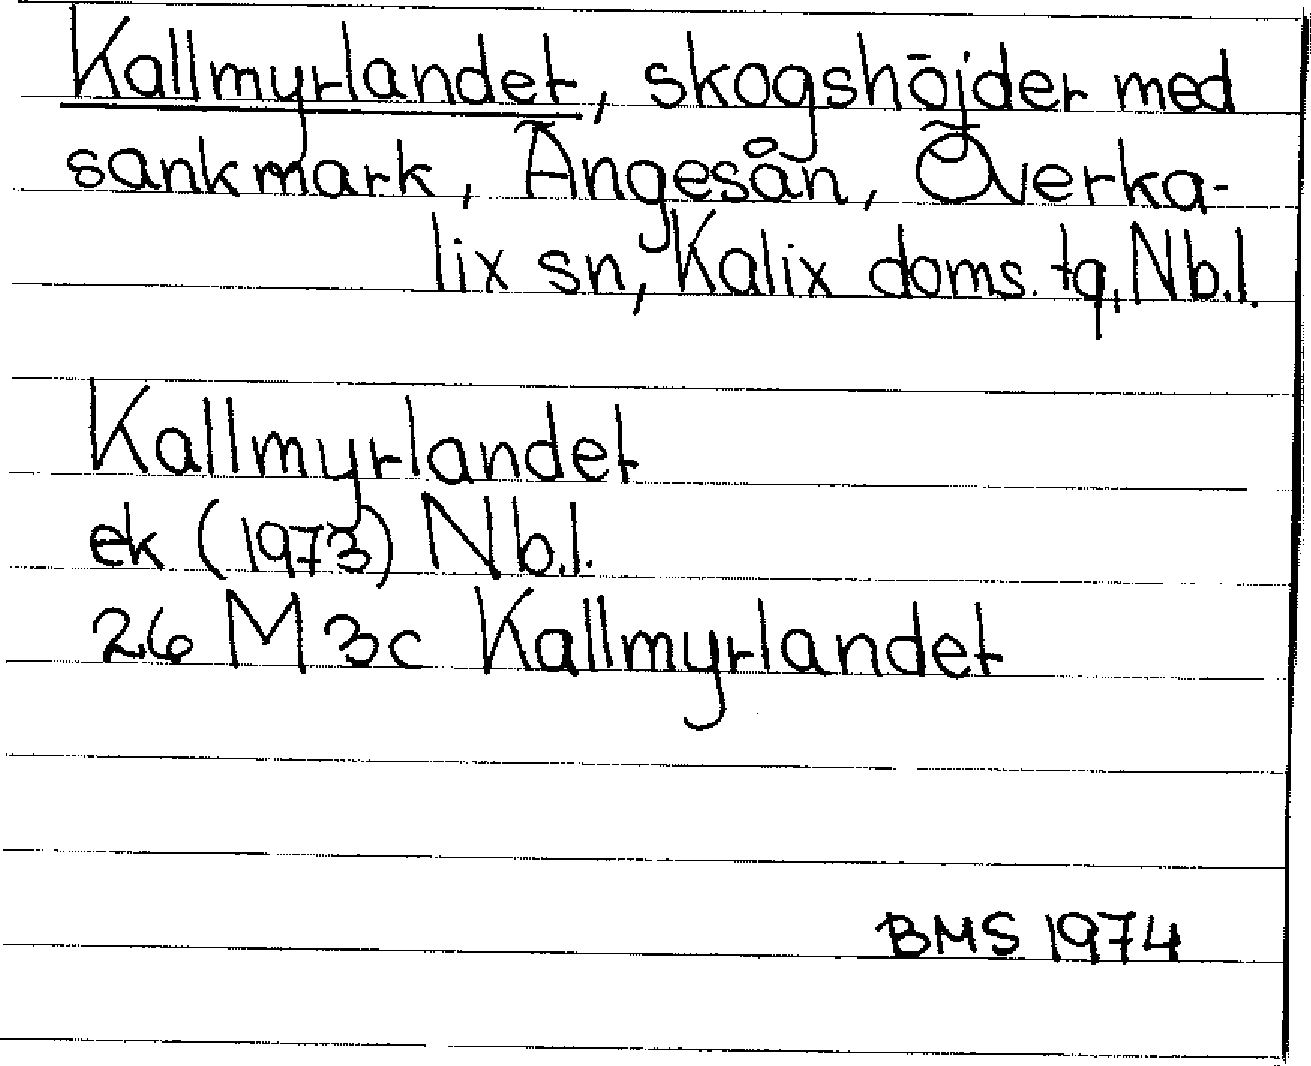 Kallmyrlandet, skogshöjder med
sankmark, Ängesån, Överka-
lix sn, Kalix doms. tg, Nb.l.
Kallmyrlandet
ek (1973) Nb.l.
26 M 3c Kallmyrlandet
BMS 1974